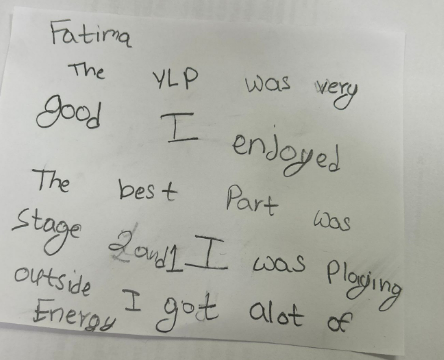 Fatima
The YLP was very
good I enjoyed
The best Part was
Stage 2and1 I was Playing
outside I got alot of
Energy